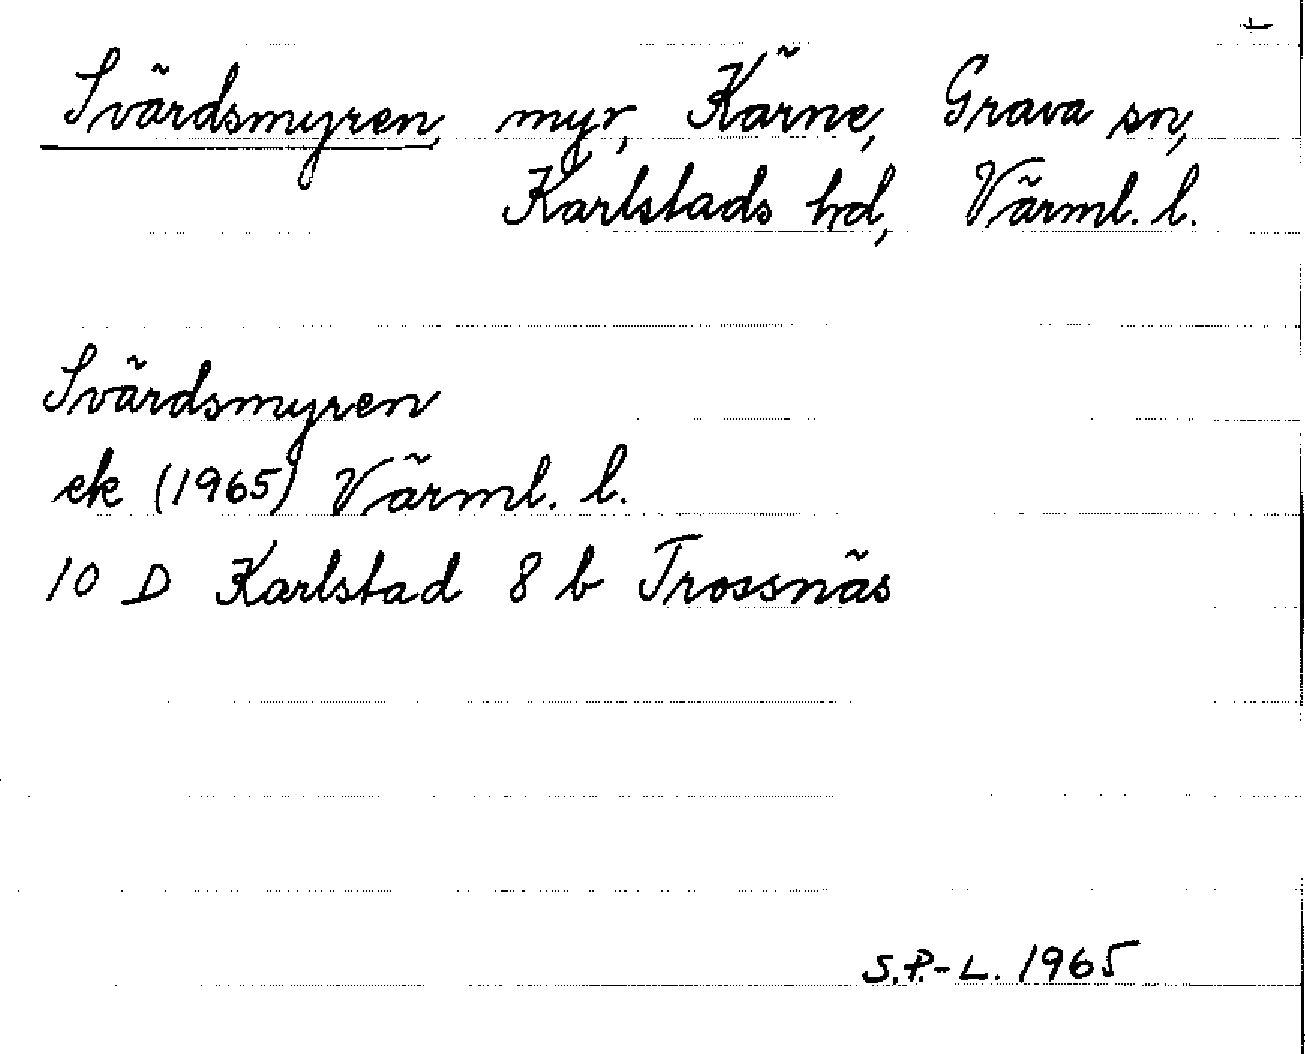 t
Svärdsmyren, myr, Kärne, Grava sn,
Karlstads hd, Värml. l.
Svärdsmyren
ek (1965) Värml. l.
10 D Karlstad 8 b Trossnäs
S.P.-L. 1965